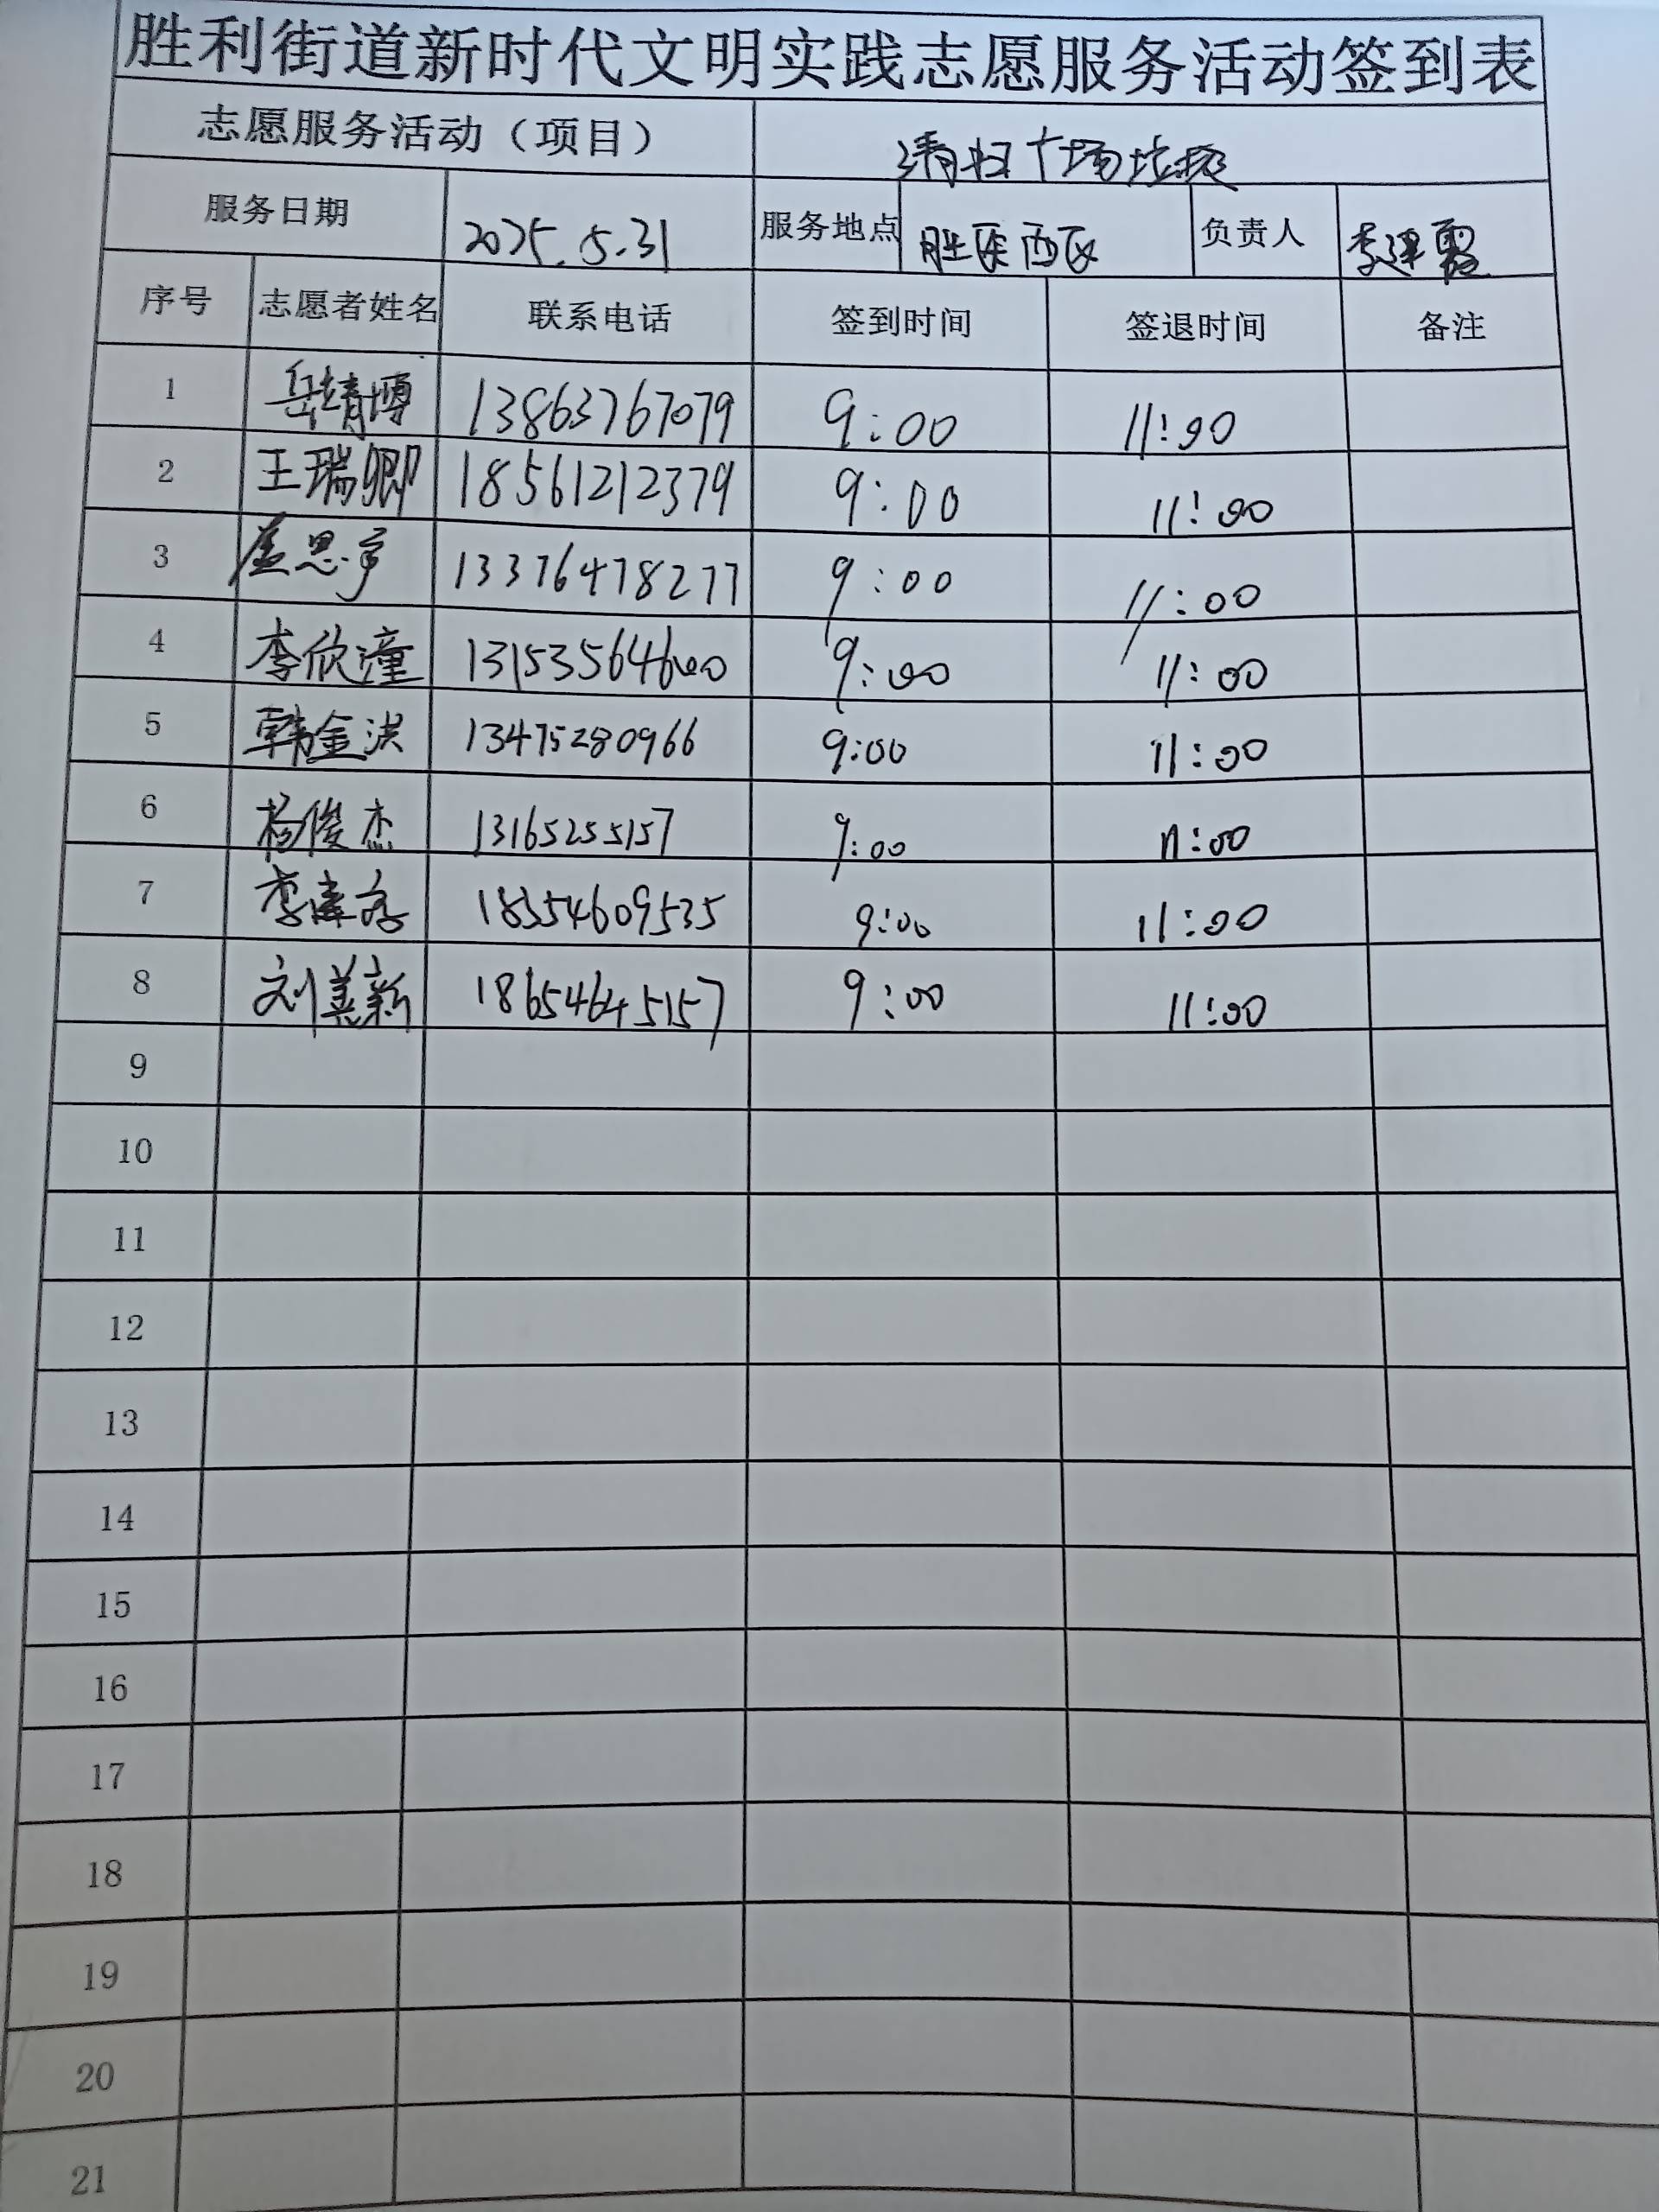 胜利街道新时代文明实践志愿服务活动签到表
志愿服务活动（项目） 清扫广场垃圾
服务日期 2025.5.31 服务地点 胜医西区 负责人 李建霞
序号 志愿者姓名 联系电话 签到时间 签退时间 备注
1 岳靖博 13863767079 9:00 11:00
2 王瑞卿 18561212379 9:00 11:00
3 盖思 13376478277 9:00 11:00
4 李欣潼 13153564600 9:00 11:00
5 韩金洪 13475280966 9:00 11:00
6 杨俊杰 13165255157 9:00 11:00
7 李 18354609535 9:00 11:00
8 刘美新 18654645157 9:00 11:00
9
10
11
12
13
14
15
16
17
18
19
20
21